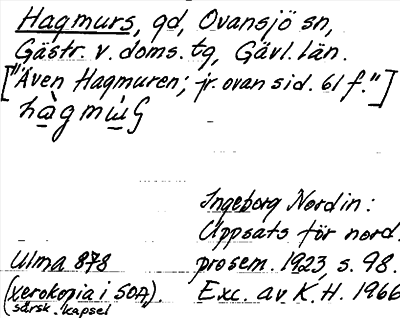 Hagmurs, gd, Ovansjö sn,
Gästr. v. doms. tg, Gävl. län.
["Även Hagmuren; jr. ovan sid. 61 f."]
Ingeborg Nordin:
Uppsats för nord.
Ulma 878 prosem. 1923, s. 98.
(xerokopia i SOA). Exc. av K.H. 1966
särsk. kapsel